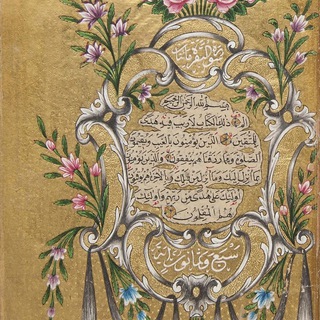 سورة البقرة مائتان
بسم الله الرحمن الرحيم
الم ذلك الكتاب لا ريب فيه هدى
للمتقين الذين يؤمنون بالغيب ويقيمون
الصلوة ومما رزقناهم ينفقون والذين يؤمنون
بما انزل اليك وما انزل من قبلك وبالاخرة هم يوقنون
اولئك على هدى من ربهم واولئك
هم المفلحون
سبع وثمانون اية